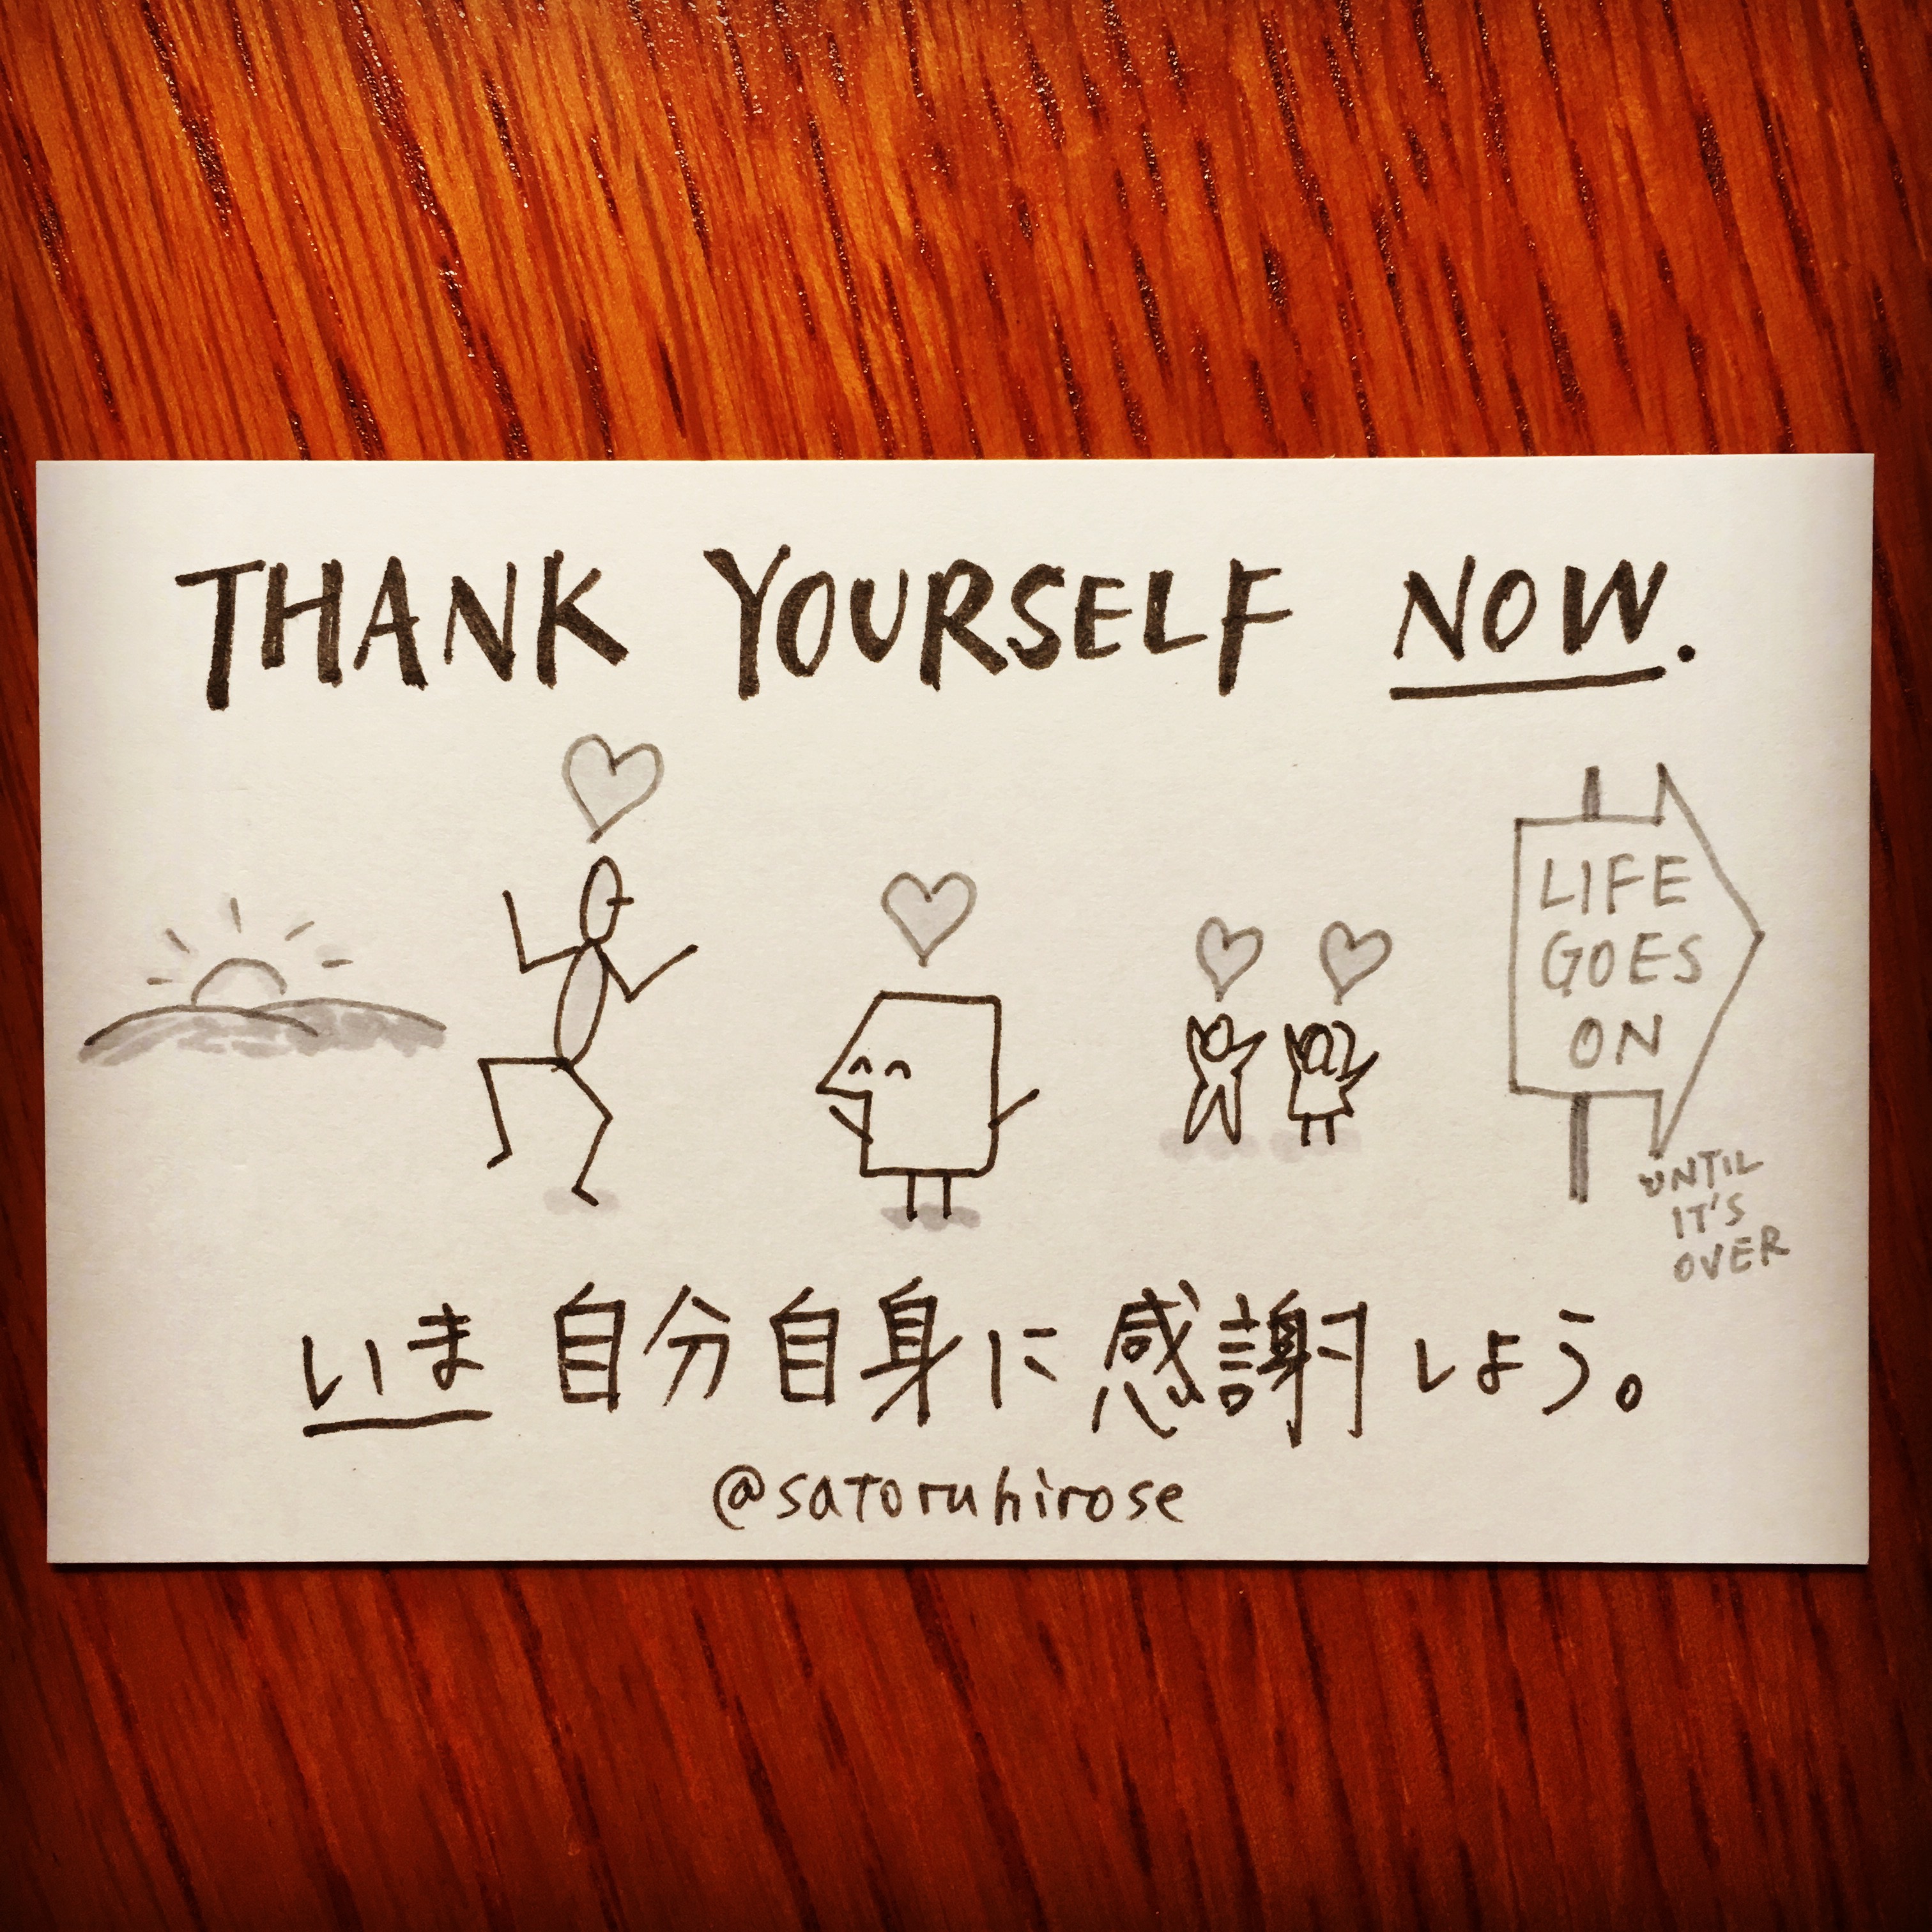 THANK YOURSELF NOW.
LIFE
GOES
ON
UNTIL
IT'S
OVER
いま 自分自身に 感謝しよう。
@satoruhirose